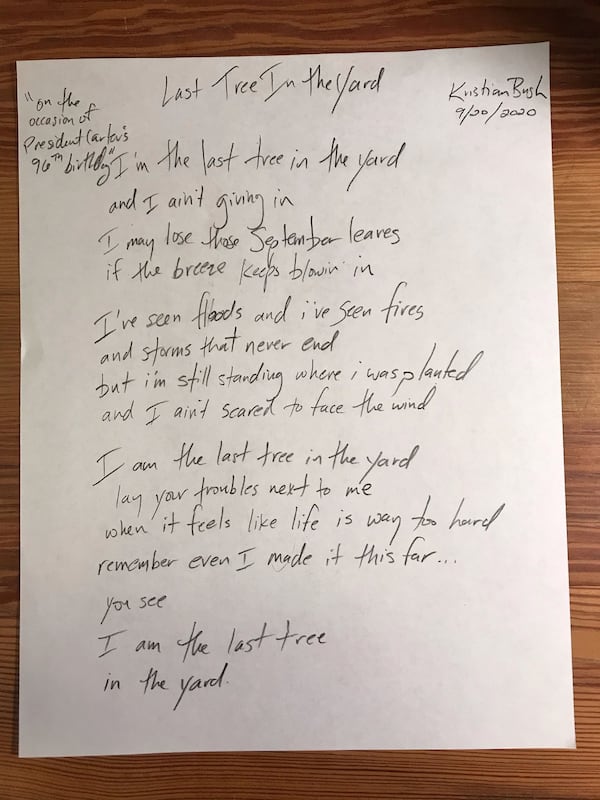 Last Tree In the Yard
Kristian Bush
9/20/2020
"on the
occasion of
President Carter's
96th birthday"
I'm the last tree in the yard
and I ain't giving in
I may lose those September leaves
if the breeze keeps blowin' in
I've seen floods and i've seen fires
and storms that never end
but i'm still standing where i was planted
and I ain't scared to face the wind
I am the last tree in the yard
lay your troubles next to me
when it feels like life is way too hard
remember even I made it this far...
you see
I am the last tree
in the yard.